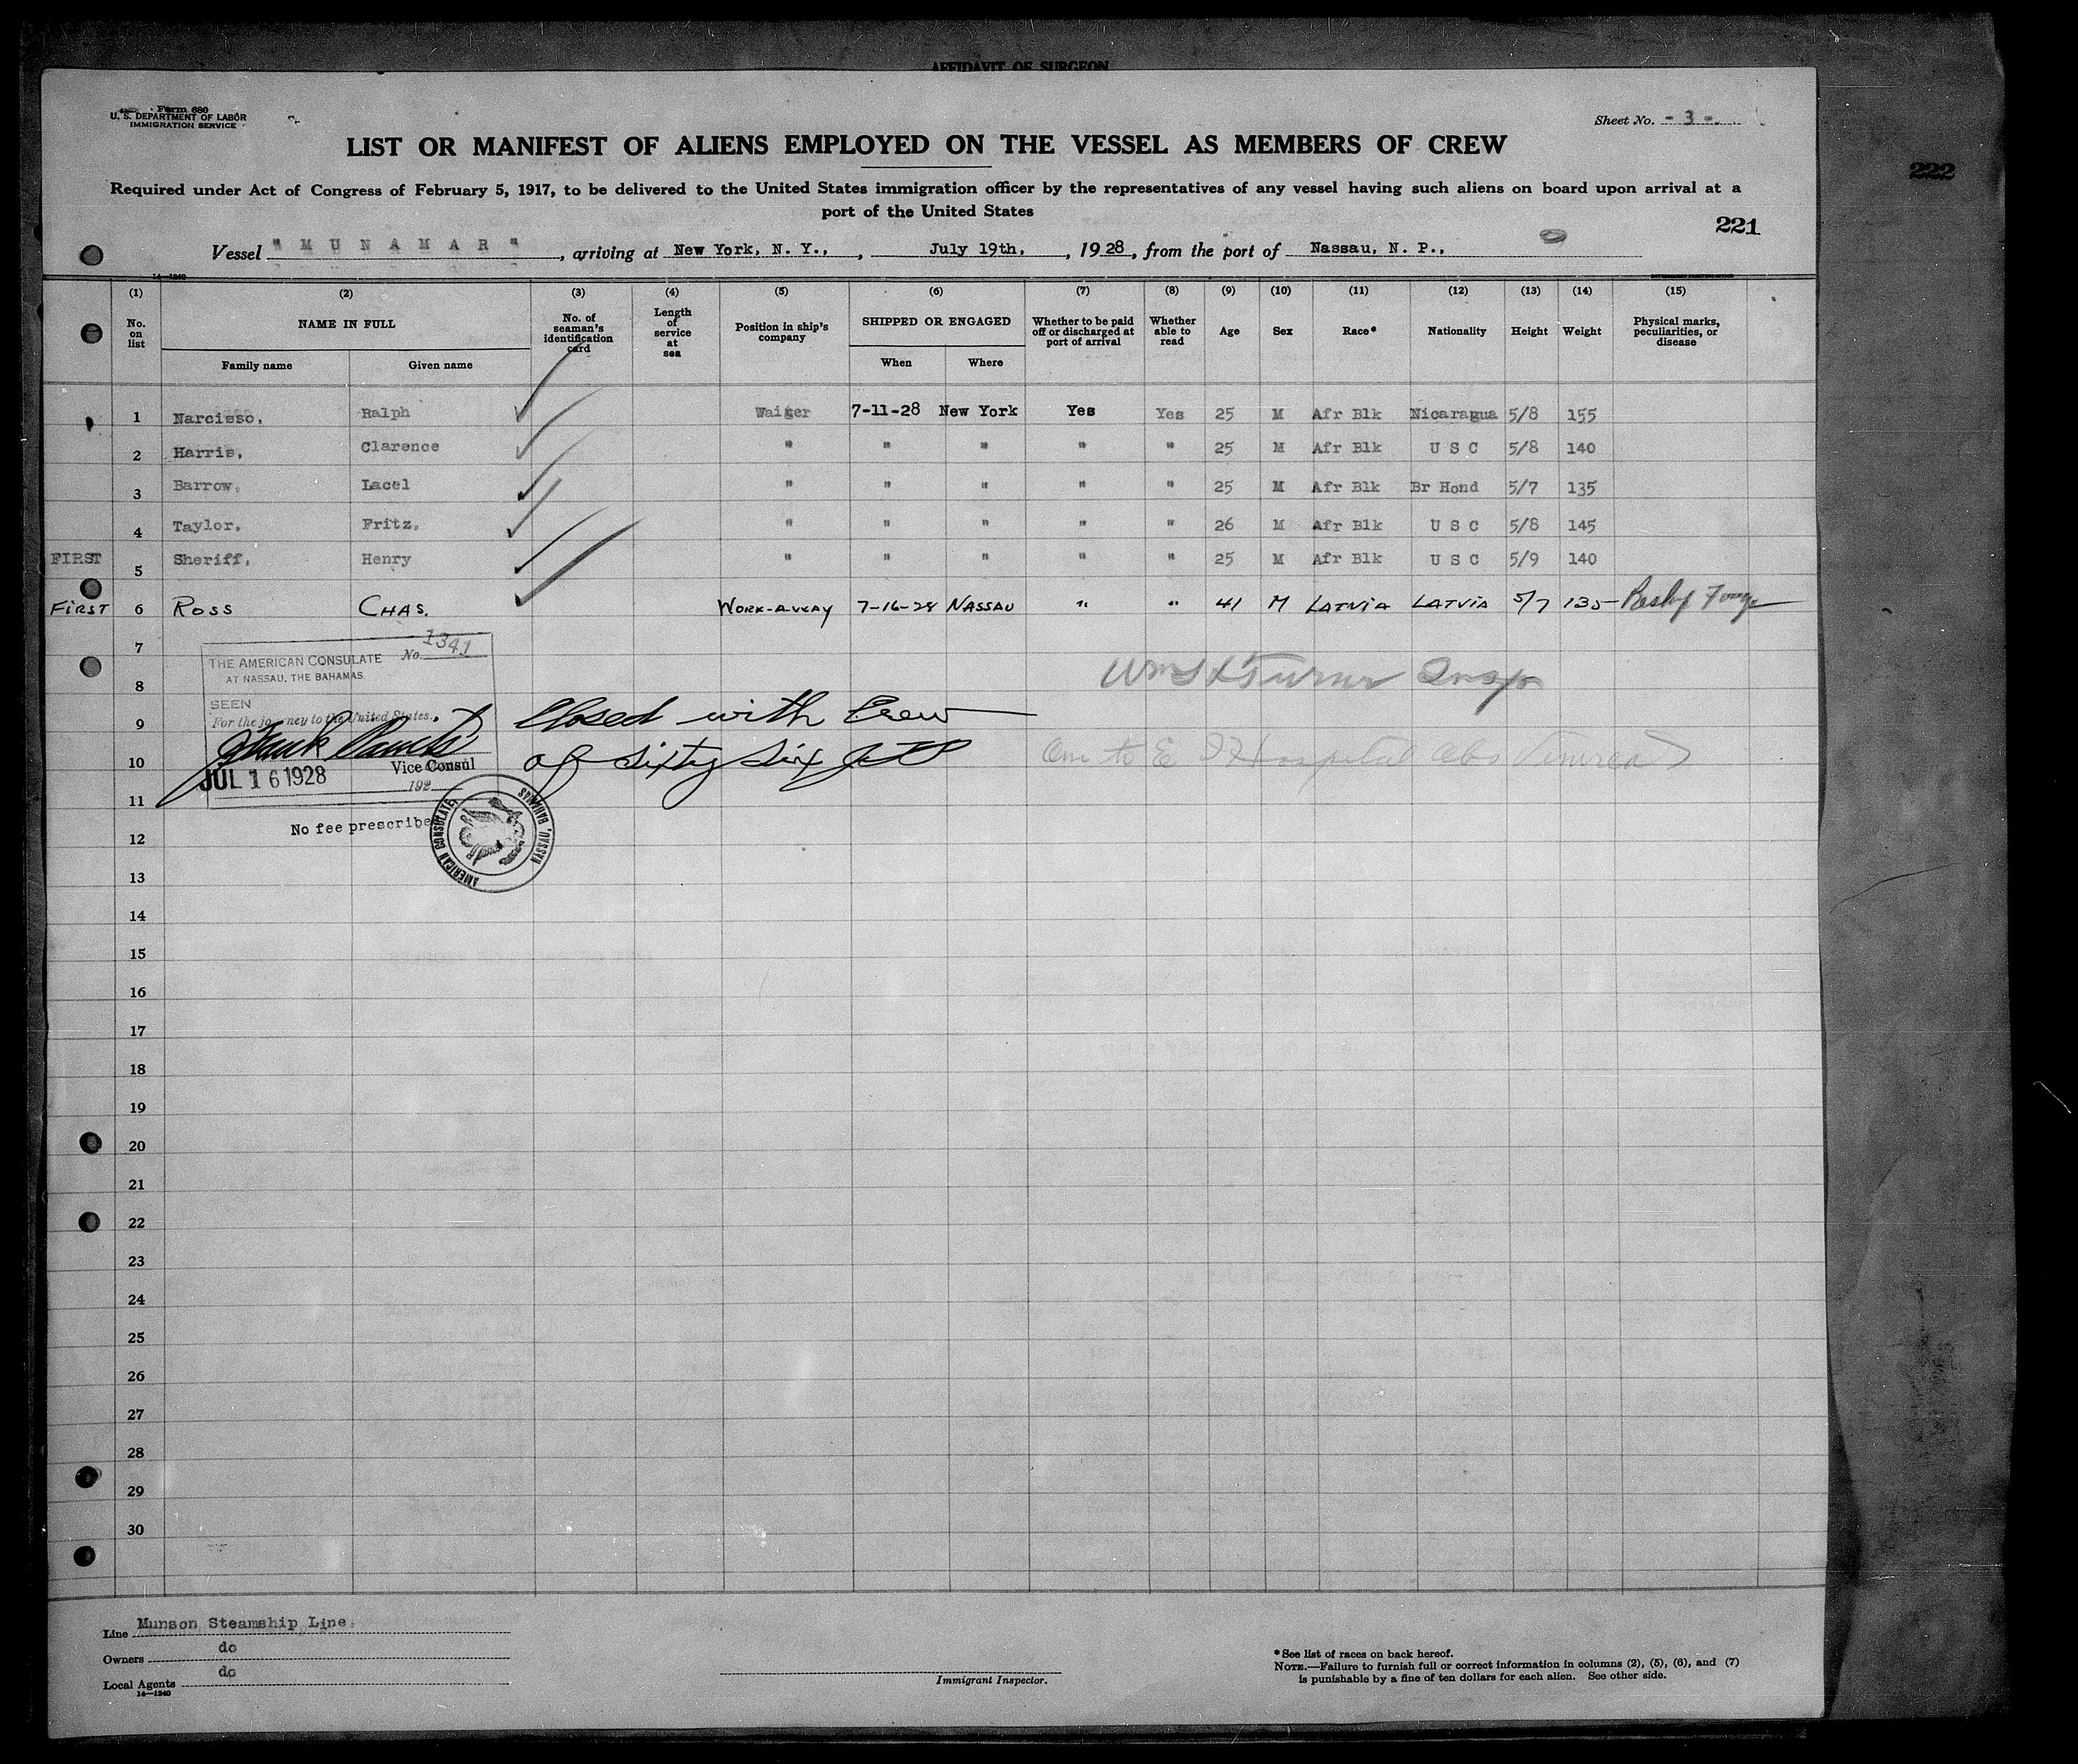 AFFIDAVIT OF SURGEON
Form 680
U. S. DEPARTMENT OF LABOR
IMMIGRATION SERVICE
Sheet No. - 3 -
LIST OR MANIFEST OF ALIENS EMPLOYED ON THE VESSEL AS MEMBERS OF CREW
222
Required under Act of Congress of February 5, 1917, to be delivered to the United States immigration officer by the representatives of any vessel having such aliens on board upon arrival at a
port of the United States
221
Vessel "M U N A M A R", arriving at New York, N. Y., July 19th, 1928, from the port of Nassau, N. P.,
14—1240
(1) (2) (3) (4) (5) (6) (7) (8) (9) (10) (11) (12) (13) (14) (15)
No. on list NAME IN FULL No. of seaman's identification card Length of service at sea Position in ship's company SHIPPED OR ENGAGED Whether to be paid off or discharged at port of arrival Whether able to read Age Sex Race* Nationality Height Weight Physical marks, peculiarities, or disease
Family name Given name When Where
1 Narcisso, Ralph Waiter 7-11-28 New York Yes Yes 25 M Afr Blk Nicaragua 5/8 155
2 Harris, Clarence " " " " " 25 M Afr Blk U S C 5/8 140
3 Barrow, Lacel " " " " " 25 M Afr Blk Br Hond 5/7 135
4 Taylor, Fritz, " " " " " 26 M Afr Blk U S C 5/8 145
FIRST 5 Sheriff, Henry " " " " " 25 M Afr Blk U S C 5/9 140
FIRST 6 ROSS CHAS. WORK-A-WAY 7-16-28 NASSAU " " 41 M LATVIA LATVIA 5/7 135
7
8
9
10
11
12
13
14
15
16
17
18
19
20
21
22
23
24
25
26
27
28
29
30
THE AMERICAN CONSULATE No. 1341
AT NASSAU, THE BAHAMAS.
SEEN
For the journey to the United States.
Vice Consul
JUL 16 1928
192
No fee prescribe
AMERICAN CONSULATE, NASSAU, BAHAMAS
Closed with Crew
of Sixty Six
Turner Insp
Hospital
Line Munson Steamship Line.
Owners do
Local Agents do
14—1240
Immigrant Inspector.
* See list of races on back hereof.
NOTE.—Failure to furnish full or correct information in columns (2), (5), (6), and (7)
is punishable by a fine of ten dollars for each alien. See other side.